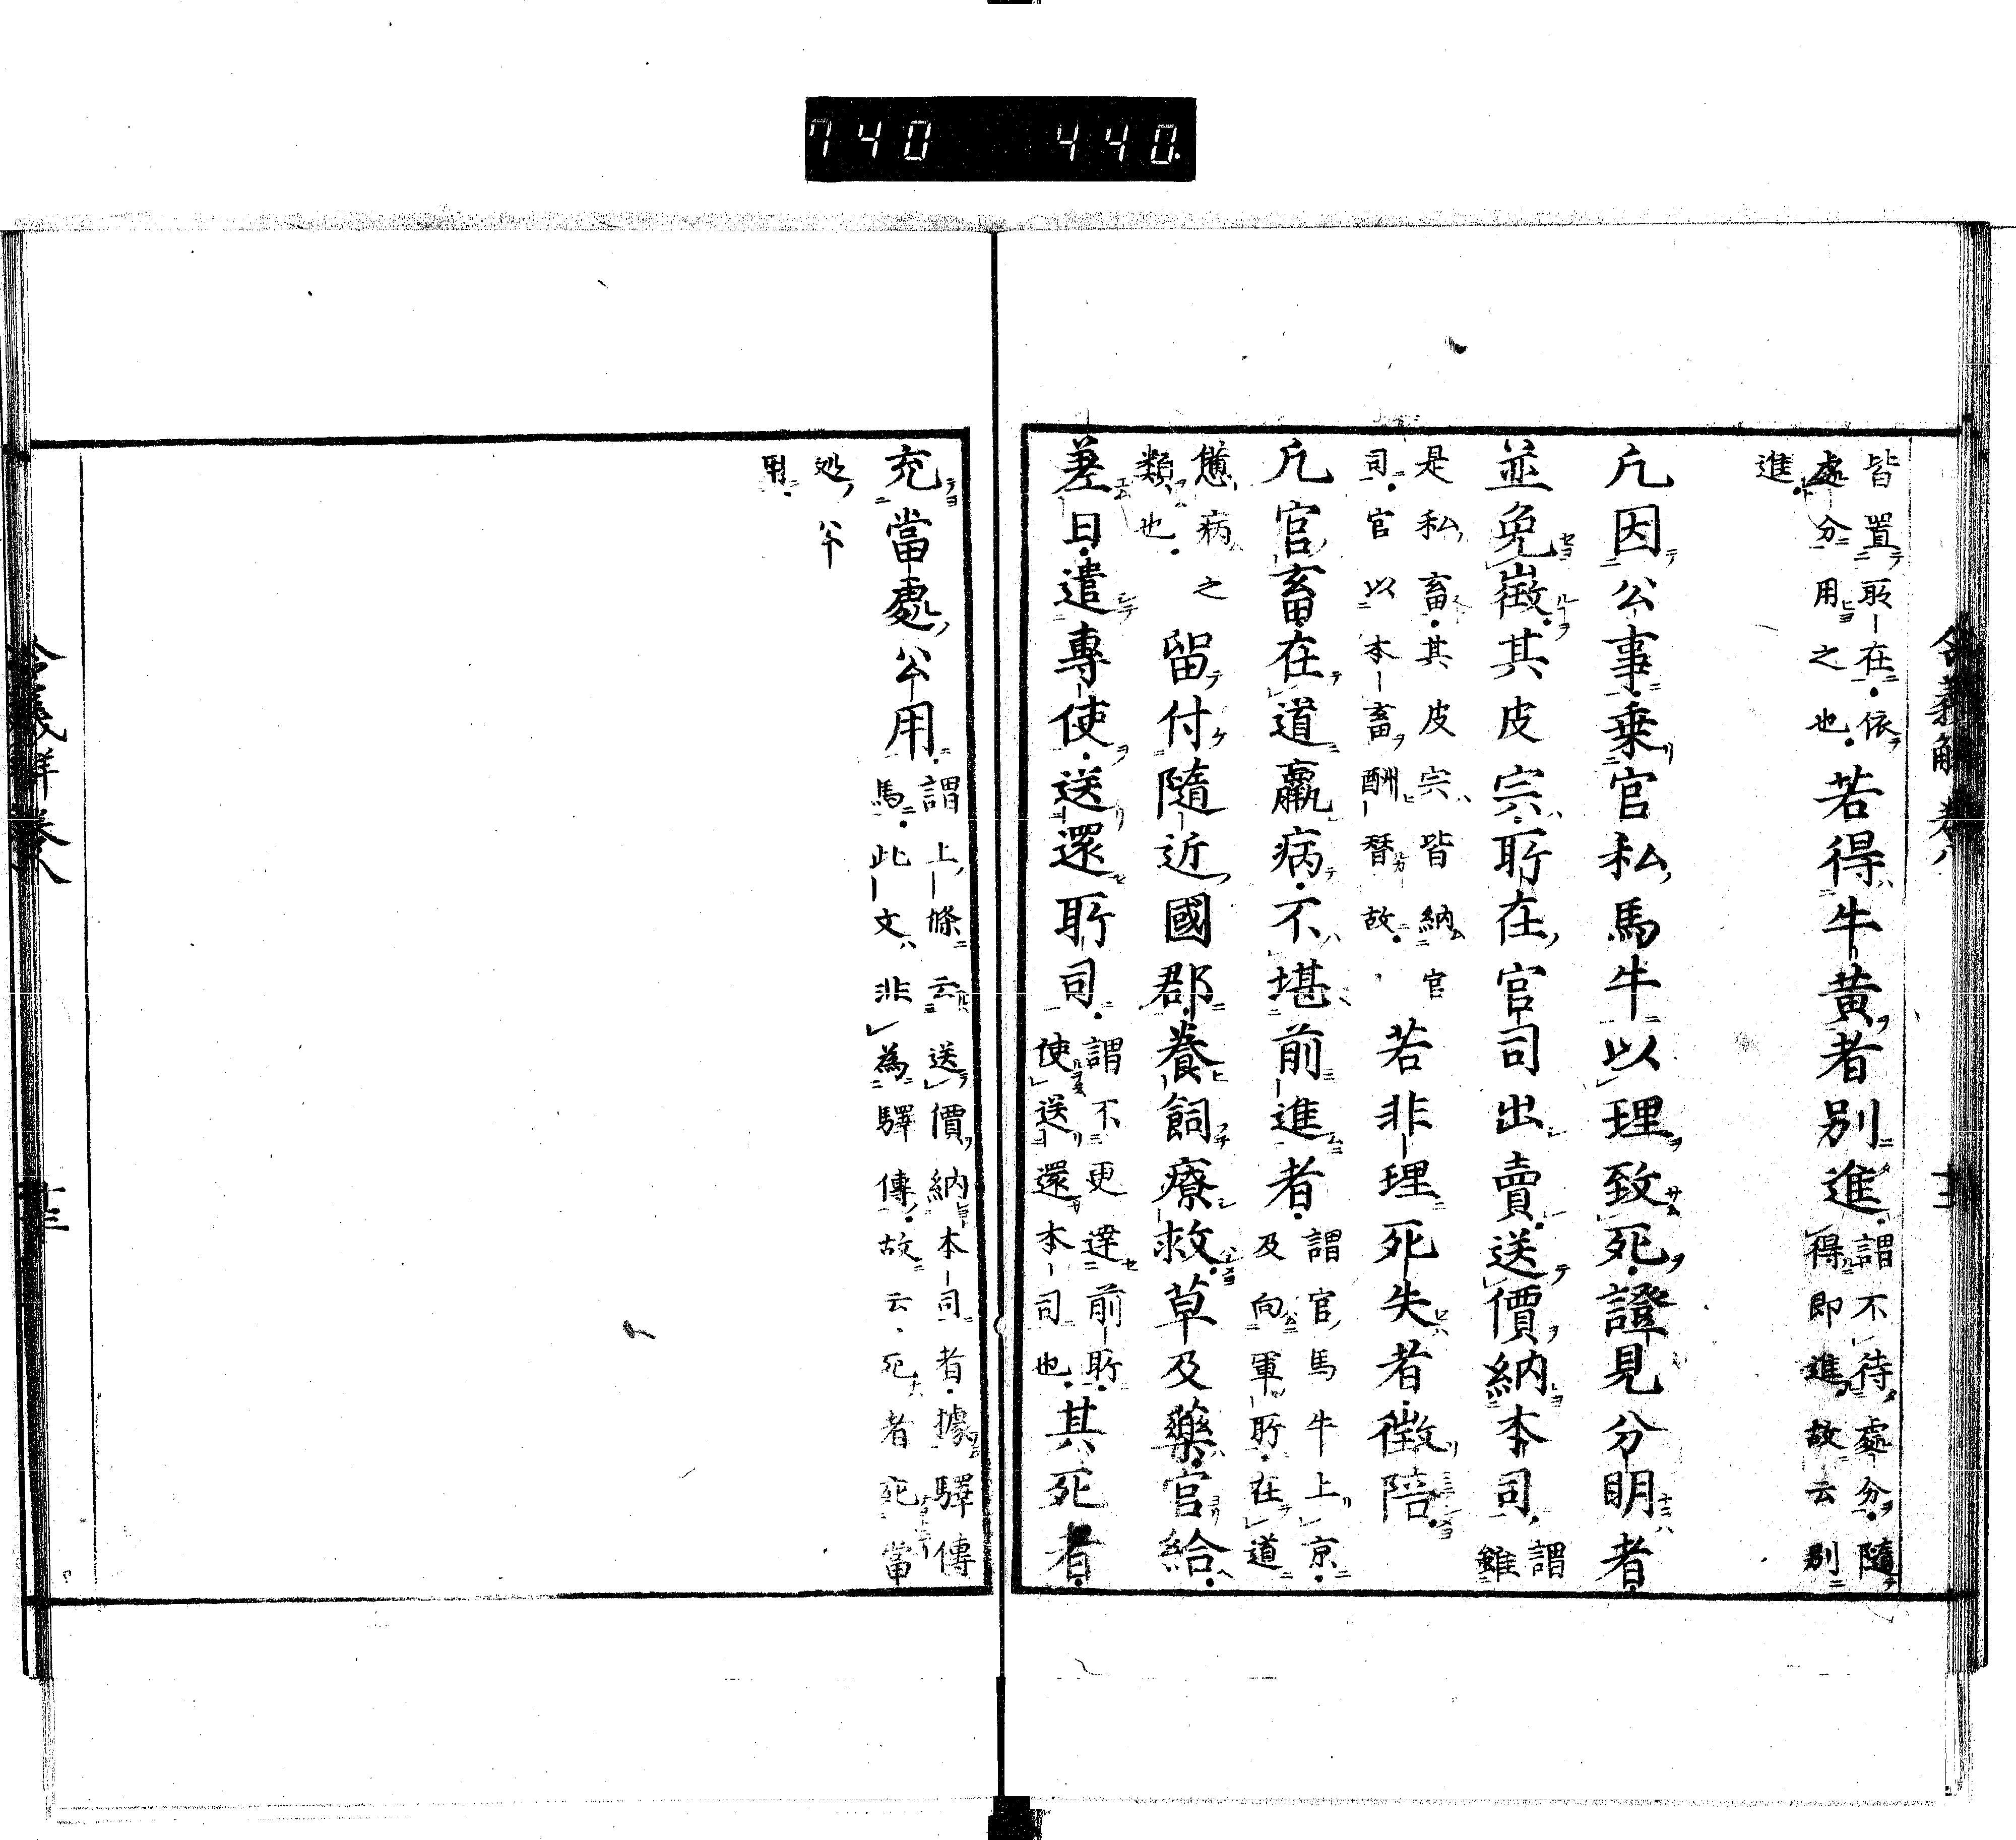 740 440.
令義解 卷八 廿三
皆置所在依處分用之也若得牛黄者別進謂不待處分隨得即進故云別進
凡因公事乗官私馬牛以理致死證見分明者
並免徴其皮宍所在官司出賣送價納本司謂雖
是私畜其皮宍皆納官司官以本畜酬替故若非理死失者徴陪
凡官畜在道羸病不堪前進者謂官馬牛上京及向軍所在道
病之類也留付隨近國郡養飼療救草及藥官給
差日遣專使送還所司謂不更達前所使送還本司也其死者
充當處公用謂上條云送價納本司者據驛傳馬此文非為驛傳故云死者死當
処公用
令義解卷八 廿三